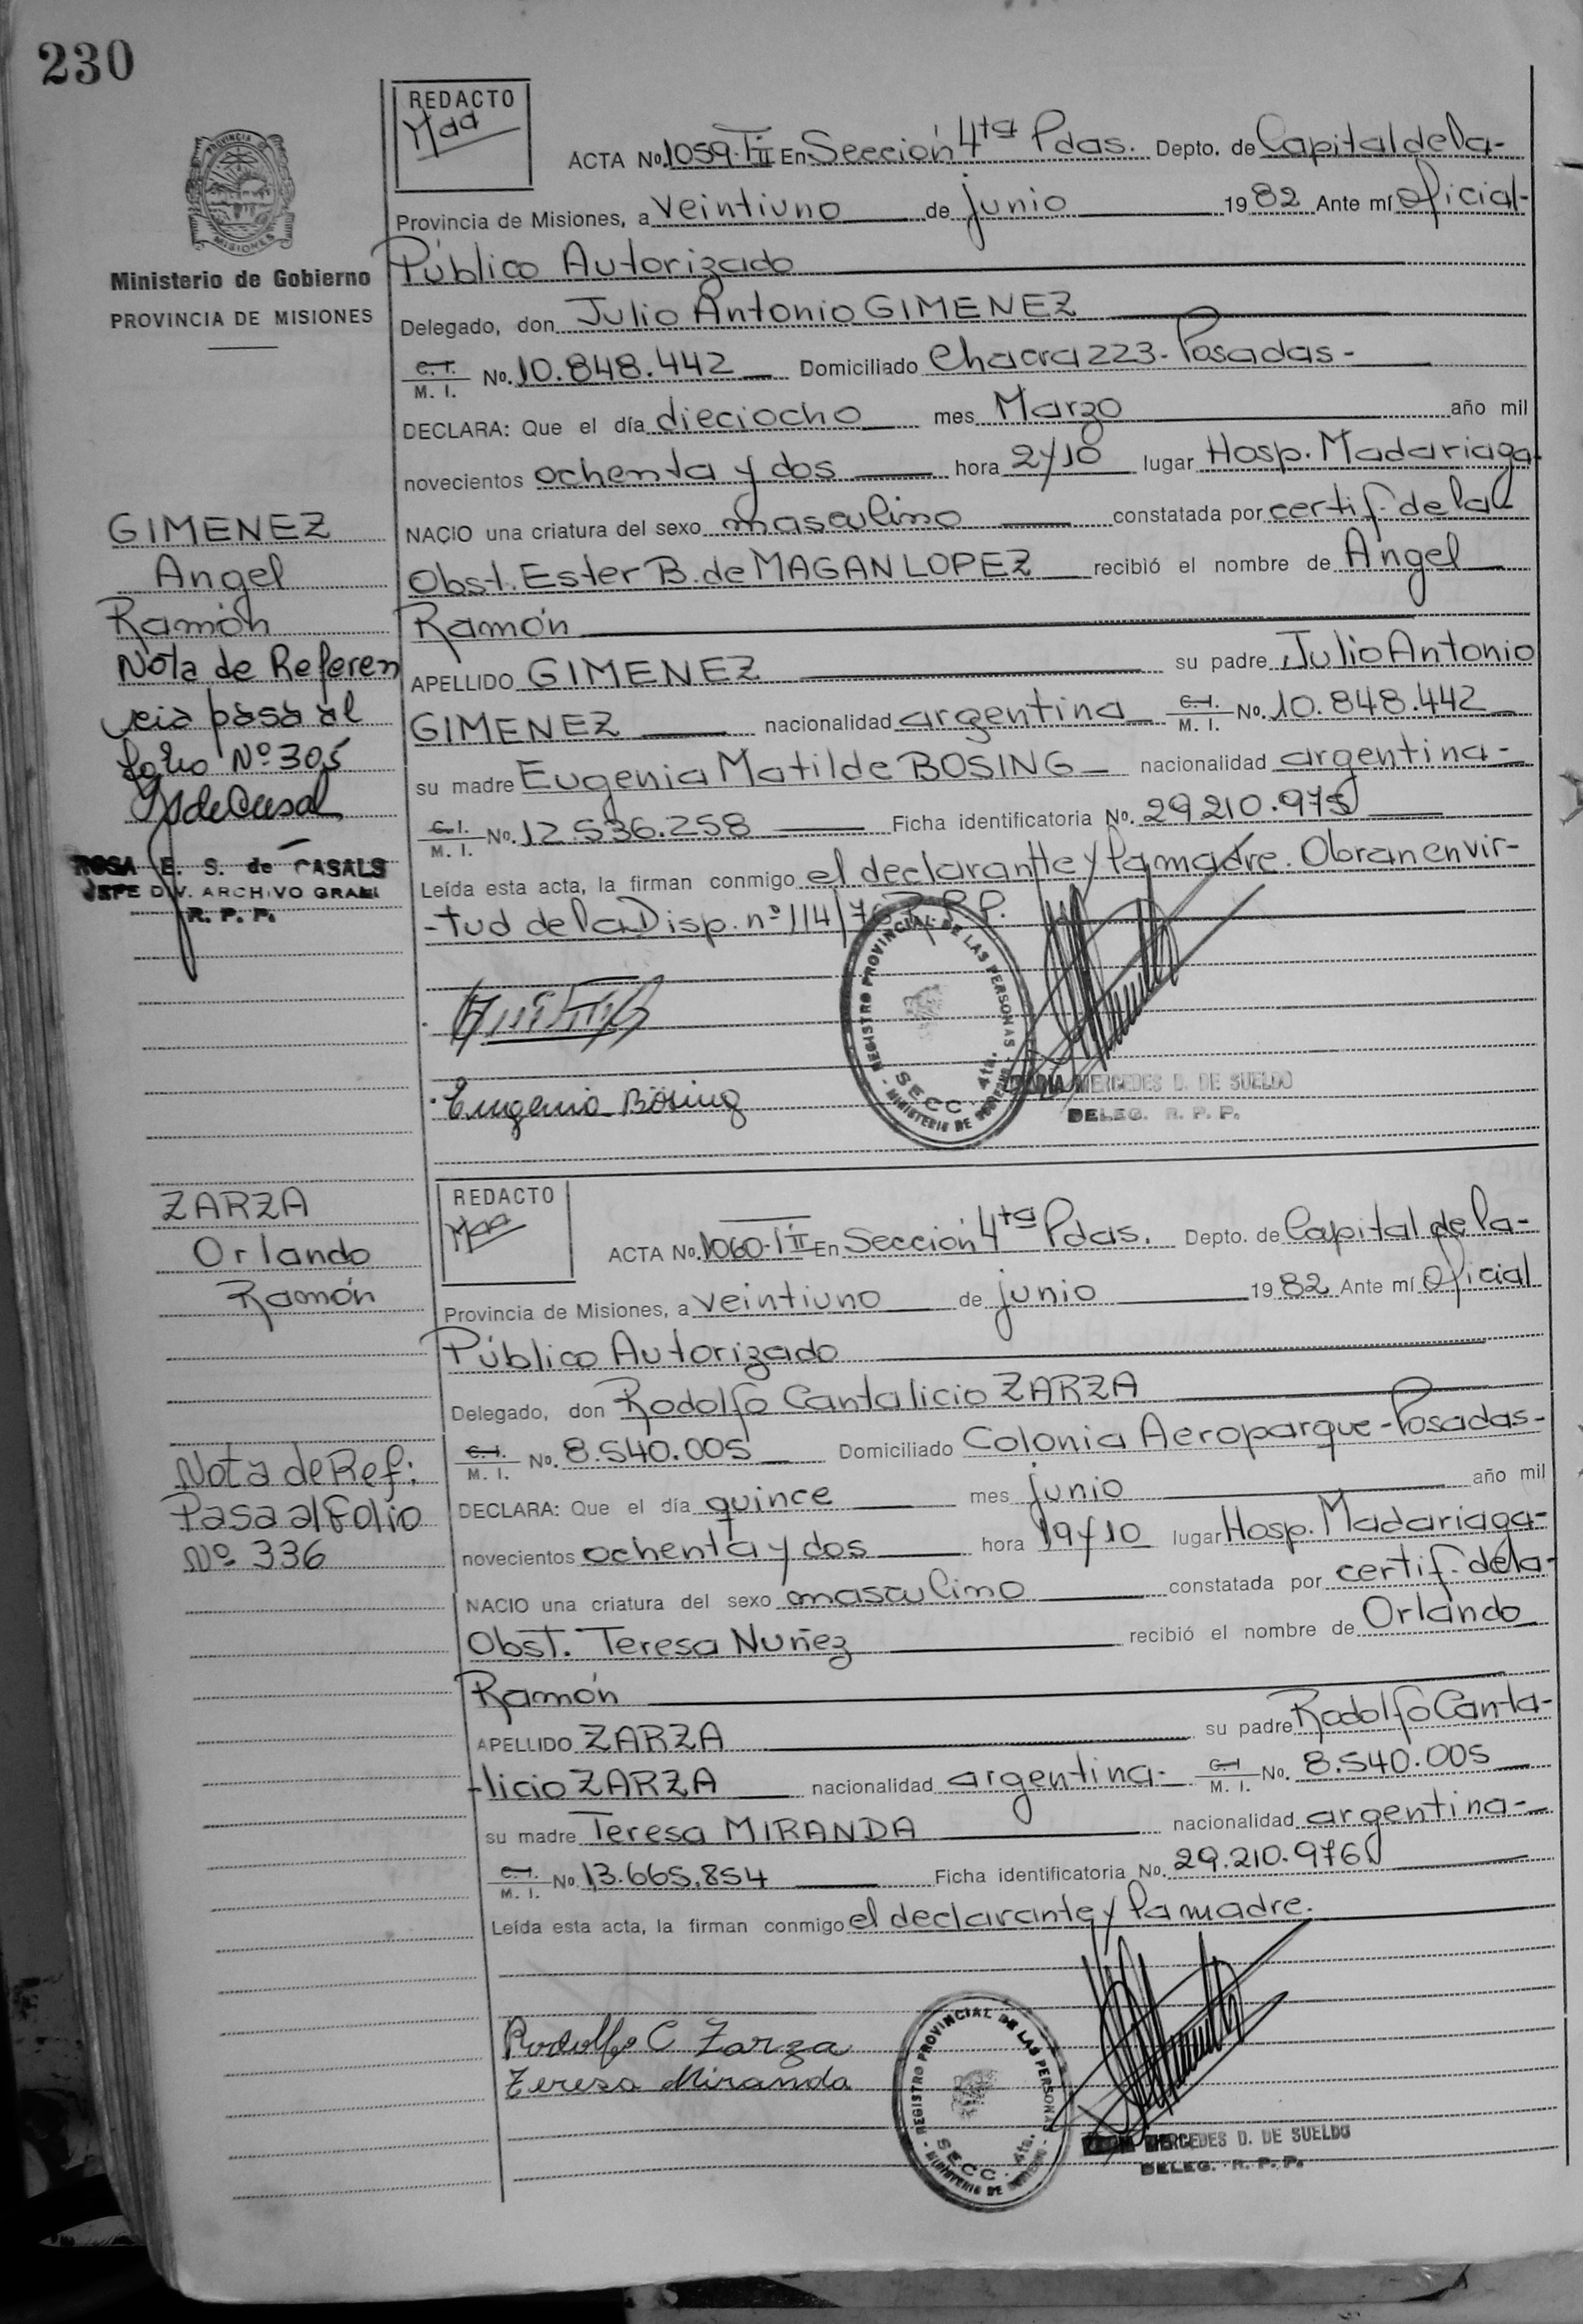 230
REDACTO
ACTA No. 1059-TºII En Sección 4ta Pdas. Depto. de Capital de la-
Provincia de Misiones, a veintiuno de junio 1982 Ante mí oficial-
Público Autorizado
Delegado, don Julio Antonio GIMENEZ
C. I.
M. I. No. 10.848.442 Domiciliado Chacra 223- Posadas-
DECLARA: Que el día dieciocho mes Marzo año mil
novecientos ochenta y dos hora 2y10 lugar Hosp. Madariaga
NACIO una criatura del sexo masculino constatada por certif. de la
Obst. Ester B. de MAGAN LOPEZ recibió el nombre de Angel
Ramón
APELLIDO GIMENEZ su padre Julio Antonio
GIMENEZ nacionalidad argentina C. I.
M. I. No. 10.848.442
su madre Eugenia Matilde BOSING nacionalidad argentina-
C. I.
M. I. No. 12.536.258 Ficha identificatoria No. 29210.975
Leída esta acta, la firman conmigo el declarante y la madre. Obran en vir-
-tud de la Disp. nº 114/
Eugenia Bösing
REGISTRO PROVINCIAL DE LAS PERSONAS
SECC. 4ta.
MINISTERIO DE GOBIERNO
MERCEDES D. DE SUELDO
DELEG. R. P. P.
PROVINCIA DE
MISIONES
Ministerio de Gobierno
PROVINCIA DE MISIONES
GIMENEZ
Angel
Ramón
Nota de Referen
cia pasa al
folio Nº 305
ROSA E. S. de CASALS
JEFE DIV. ARCHIVO GRAL.
R. P. P.
REDACTO
ACTA No. 1060-TºII En Sección 4ta Pdas. Depto. de Capital de la-
Provincia de Misiones, a veintiuno de junio 1982 Ante mí oficial
Público Autorizado
Delegado, don Rodolfo Cantalicio ZARZA
C. I.
M. I. No. 8.540.005 Domiciliado Colonia Aeroparque-Posadas-
DECLARA: Que el día quince mes junio año mil
novecientos ochenta y dos hora 19y10 lugar Hosp. Madariaga-
NACIO una criatura del sexo masculino constatada por certif. de la-
Obst. Teresa Nuñez recibió el nombre de Orlando
Ramón
APELLIDO ZARZA su padre Rodolfo Canta-
-licio ZARZA nacionalidad argentina- C. I.
M. I. No. 8.540.005
su madre Teresa MIRANDA nacionalidad argentina-
C. I.
M. I. No. 13.665.854 Ficha identificatoria No. 29.210.976
Leída esta acta, la firman conmigo el declarante y la madre.
Rodolfo C Zarza
Teresa Miranda
REGISTRO PROVINCIAL DE LAS PERSONAS
SECC. 4ta.
MINISTERIO DE GOBIERNO
MERCEDES D. DE SUELDO
DELEG. R. P. P.
ZARZA
Orlando
Ramón
Nota de Ref:
Pasa al Folio
Nº 336